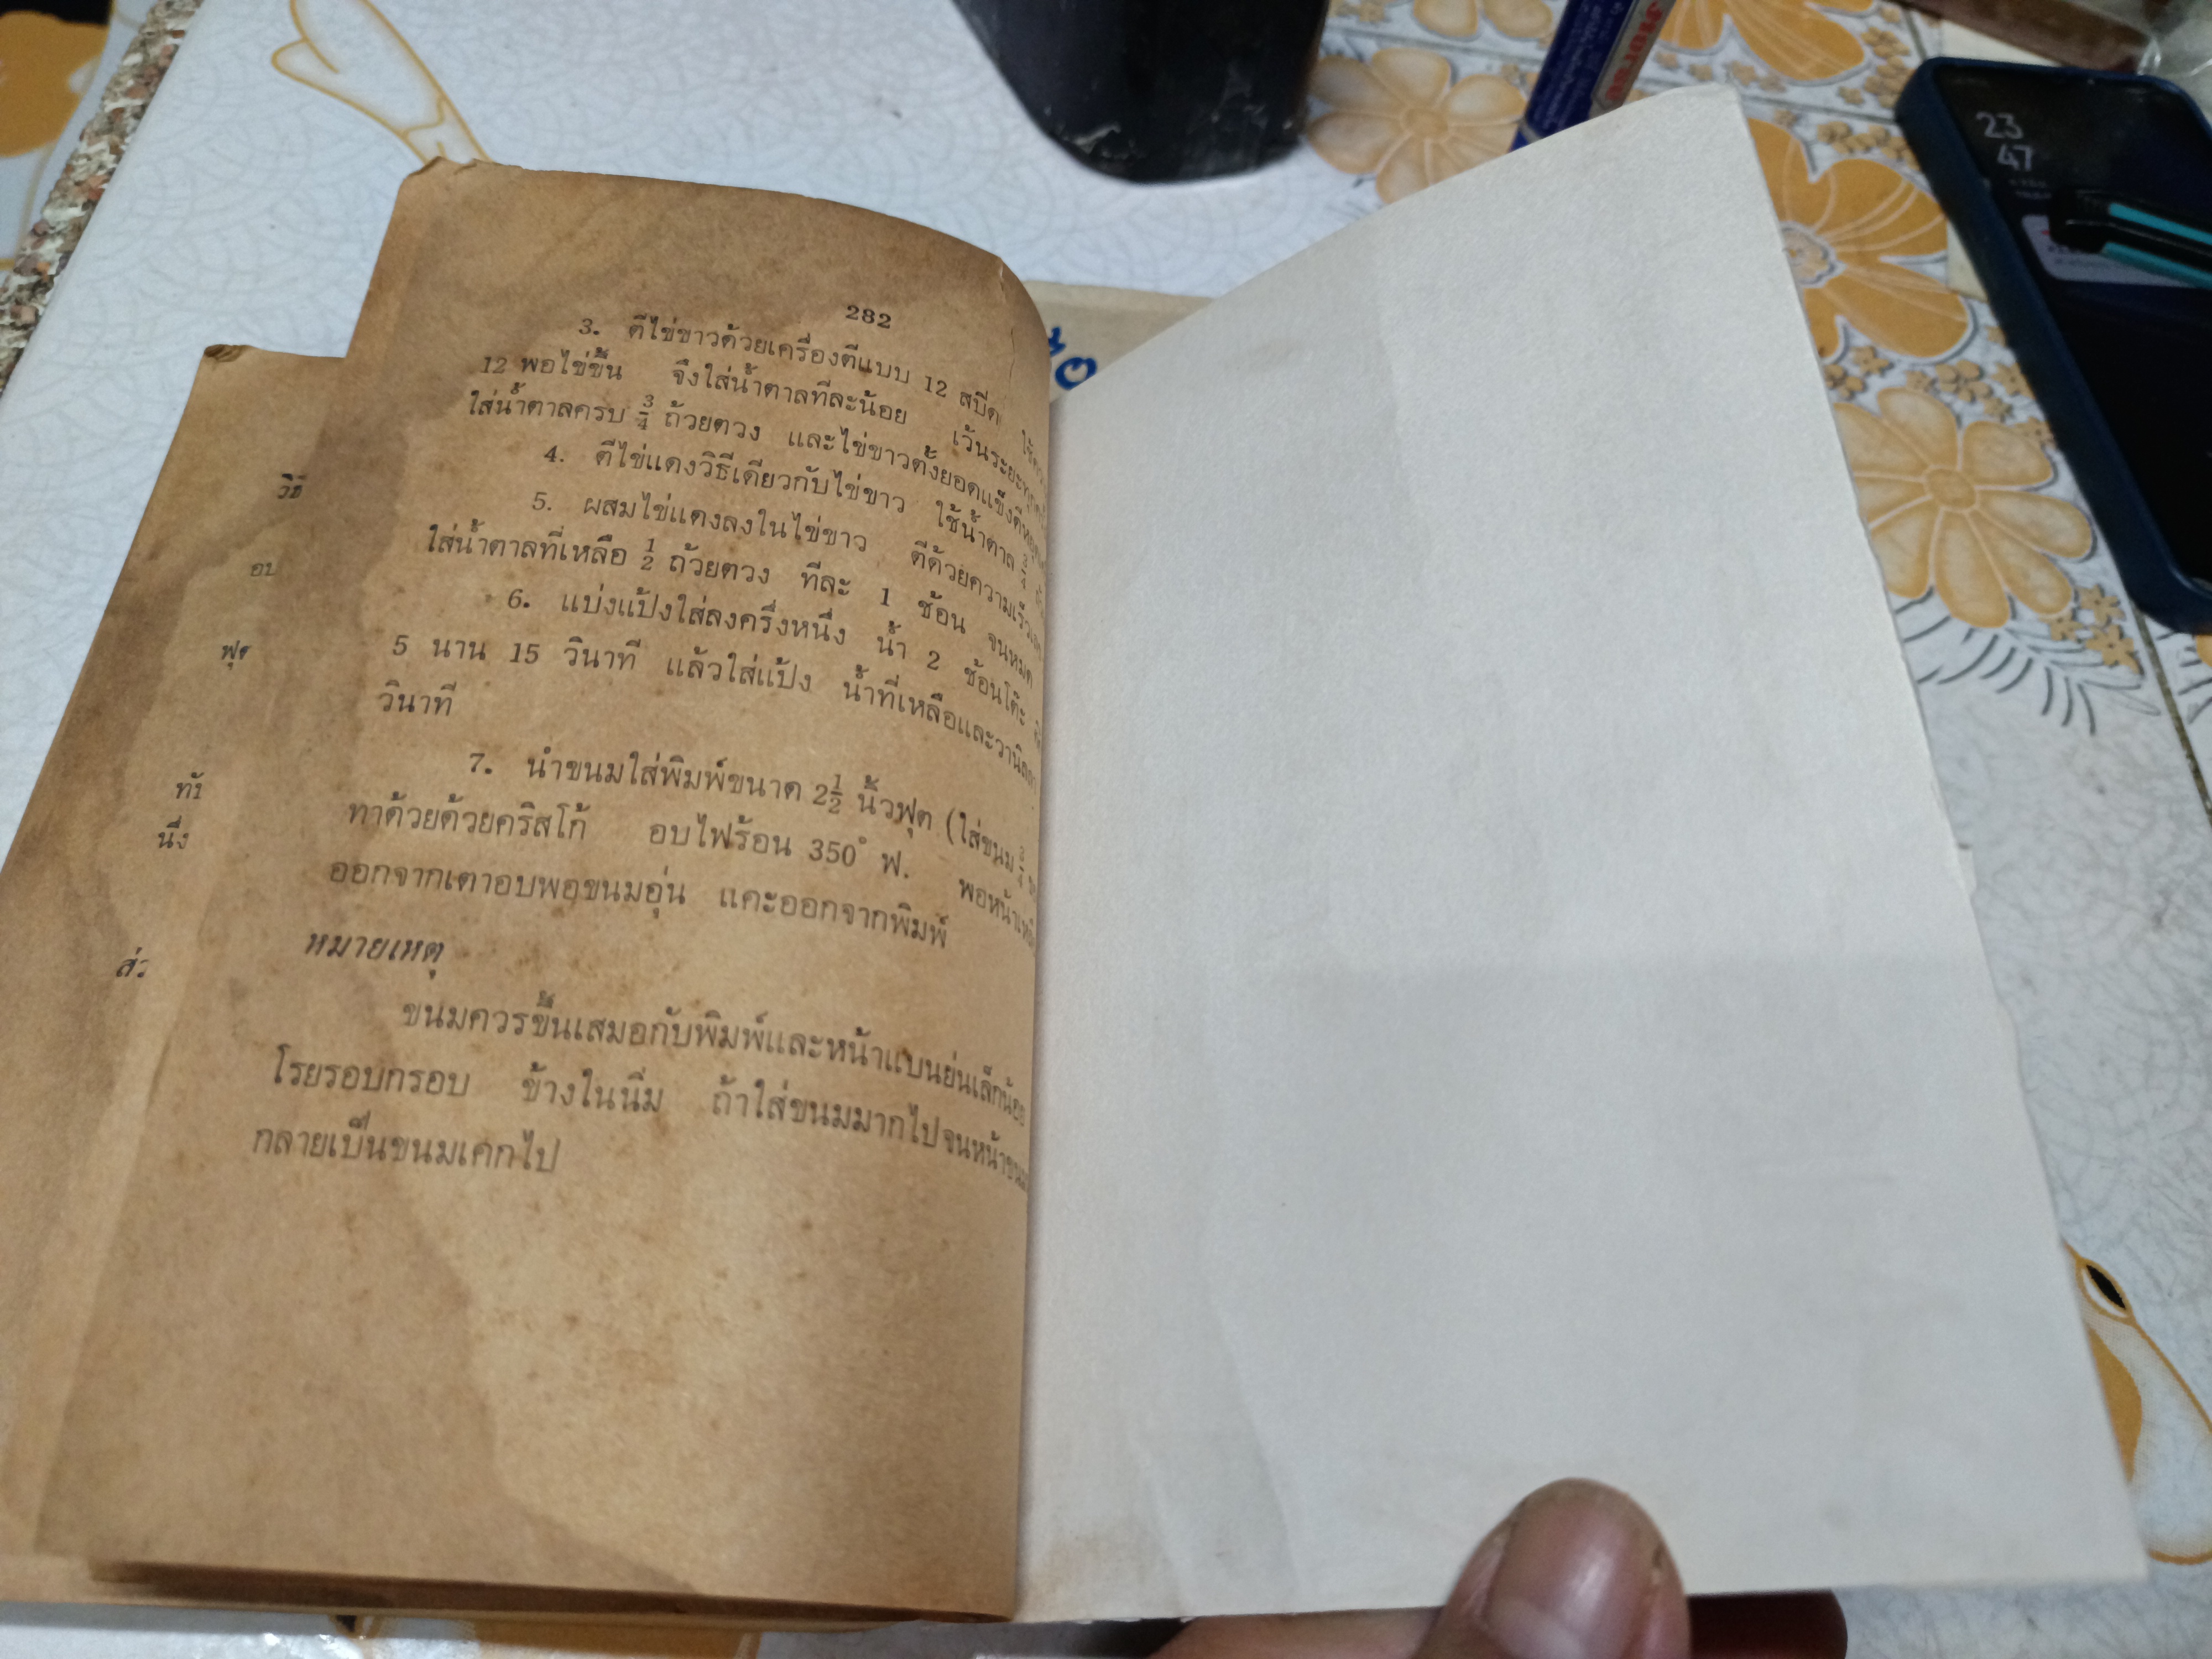 282
3. ตีไข่ขาวด้วยเครื่องตีแบบ 12 สปีด
12 พอไข่ขึ้น จึงใส่น้ำตาลทีละน้อย เว้นระยะ
ใส่น้ำตาลครบ 3/4 ถ้วยตวง และไข่ขาวตั้งยอดแข็งดี
4. ตีไข่แดงวิธีเดียวกับไข่ขาว ใช้น้ำตาล
5. ผสมไข่แดงลงในไข่ขาว ตีด้วยความเร็ว
ใส่น้ำตาลที่เหลือ 1/2 ถ้วยตวง ทีละ 1 ช้อน จนหมด
6. แบ่งแป้งใส่ลงครึ่งหนึ่ง น้ำ 2 ช้อนโต๊ะ
5 นาน 15 วินาที แล้วใส่แป้ง น้ำที่เหลือและวานิลลา
วินาที
7. นำขนมใส่พิมพ์ขนาด 2 1/2 นิ้วฟุต (ใส่ขนม
ทาด้วยด้วยคริสโก้ อบไฟร้อน 350° ฟ. พอหน้า
ออกจากเตาอบพอขนมอุ่น แคะออกจากพิมพ์
หมายเหตุ
ขนมควรขึ้นเสมอกับพิมพ์และหน้าแบนย่นเล็กน้อย
โรยรอบกรอบ ข้างในนิ่ม ถ้าใส่ขนมมากไปจนหน้า
กลายเป็นขนมเคกไป
วิธี
นึ่ง
23
47